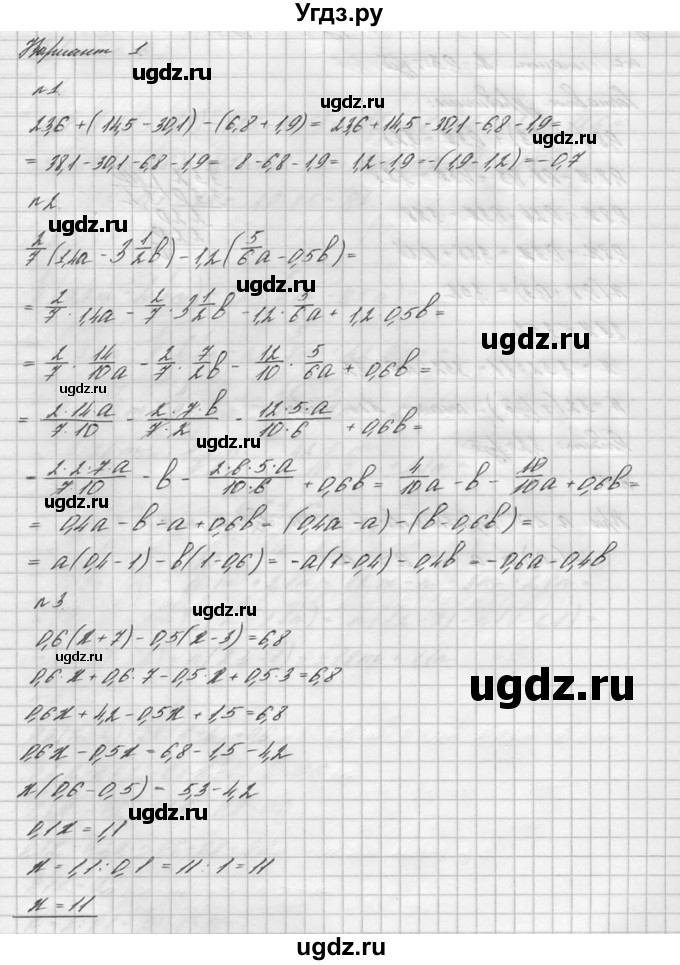 Угдз.ру
Вариант 1.
№1.
23,6 + (14,5 − 30,1) − (6,8 + 1,9) = 23,6 + 14,5 − 30,1 − 6,8 − 1,9 =
= 38,1 − 30,1 − 6,8 − 1,9 = 8 − 6,8 − 1,9 = 1,2 − 1,9 = −(1,9 − 1,2) = −0,7
№2.
2/7 (1,4a − 3 1/2 b) − 1,2 (5/6 a − 0,5b) =
= 2/7 · 1,4a − 2/7 · 3 1/2 b − 1,2 · 5/6 a + 1,2 · 0,5b =
= 2/7 · 14/10 a − 2/7 · 7/2 b − 12/10 · 5/6 a + 0,6b =
= 2·14·a/7·10 − 2·7·b/7·2 − 12·5·a/10·6 + 0,6b =
= 2·2·7·a/7·10 − b − 2·6·5·a/10·6 + 0,6b = 4/10 a − b − 10/10 a + 0,6b =
= 0,4a − b − a + 0,6b = (0,4a − a) − (b − 0,6b) =
= a(0,4 − 1) − b(1 − 0,6) = −a(1 − 0,4) − 0,4b = −0,6a − 0,4b
№3.
0,6(x + 7) − 0,5(x − 3) = 6,8
0,6·x + 0,6·7 − 0,5·x + 0,5·3 = 6,8
0,6x + 4,2 − 0,5x + 1,5 = 6,8
0,6x − 0,5x = 6,8 − 1,5 − 4,2
x(0,6 − 0,5) = 5,3 − 4,2
0,1x = 1,1
x = 1,1 : 0,1 = 11 : 1 = 11
x = 11
ugdz.ru
ugdz.ru
ugdz.ru
ugdz.ru
ugdz.ru
ugdz.ru
ugdz.ru
ugdz.ru
ugdz.ru
ugdz.ru
ugdz.ru
ugdz.ru
ugdz.ru
ugdz.ru